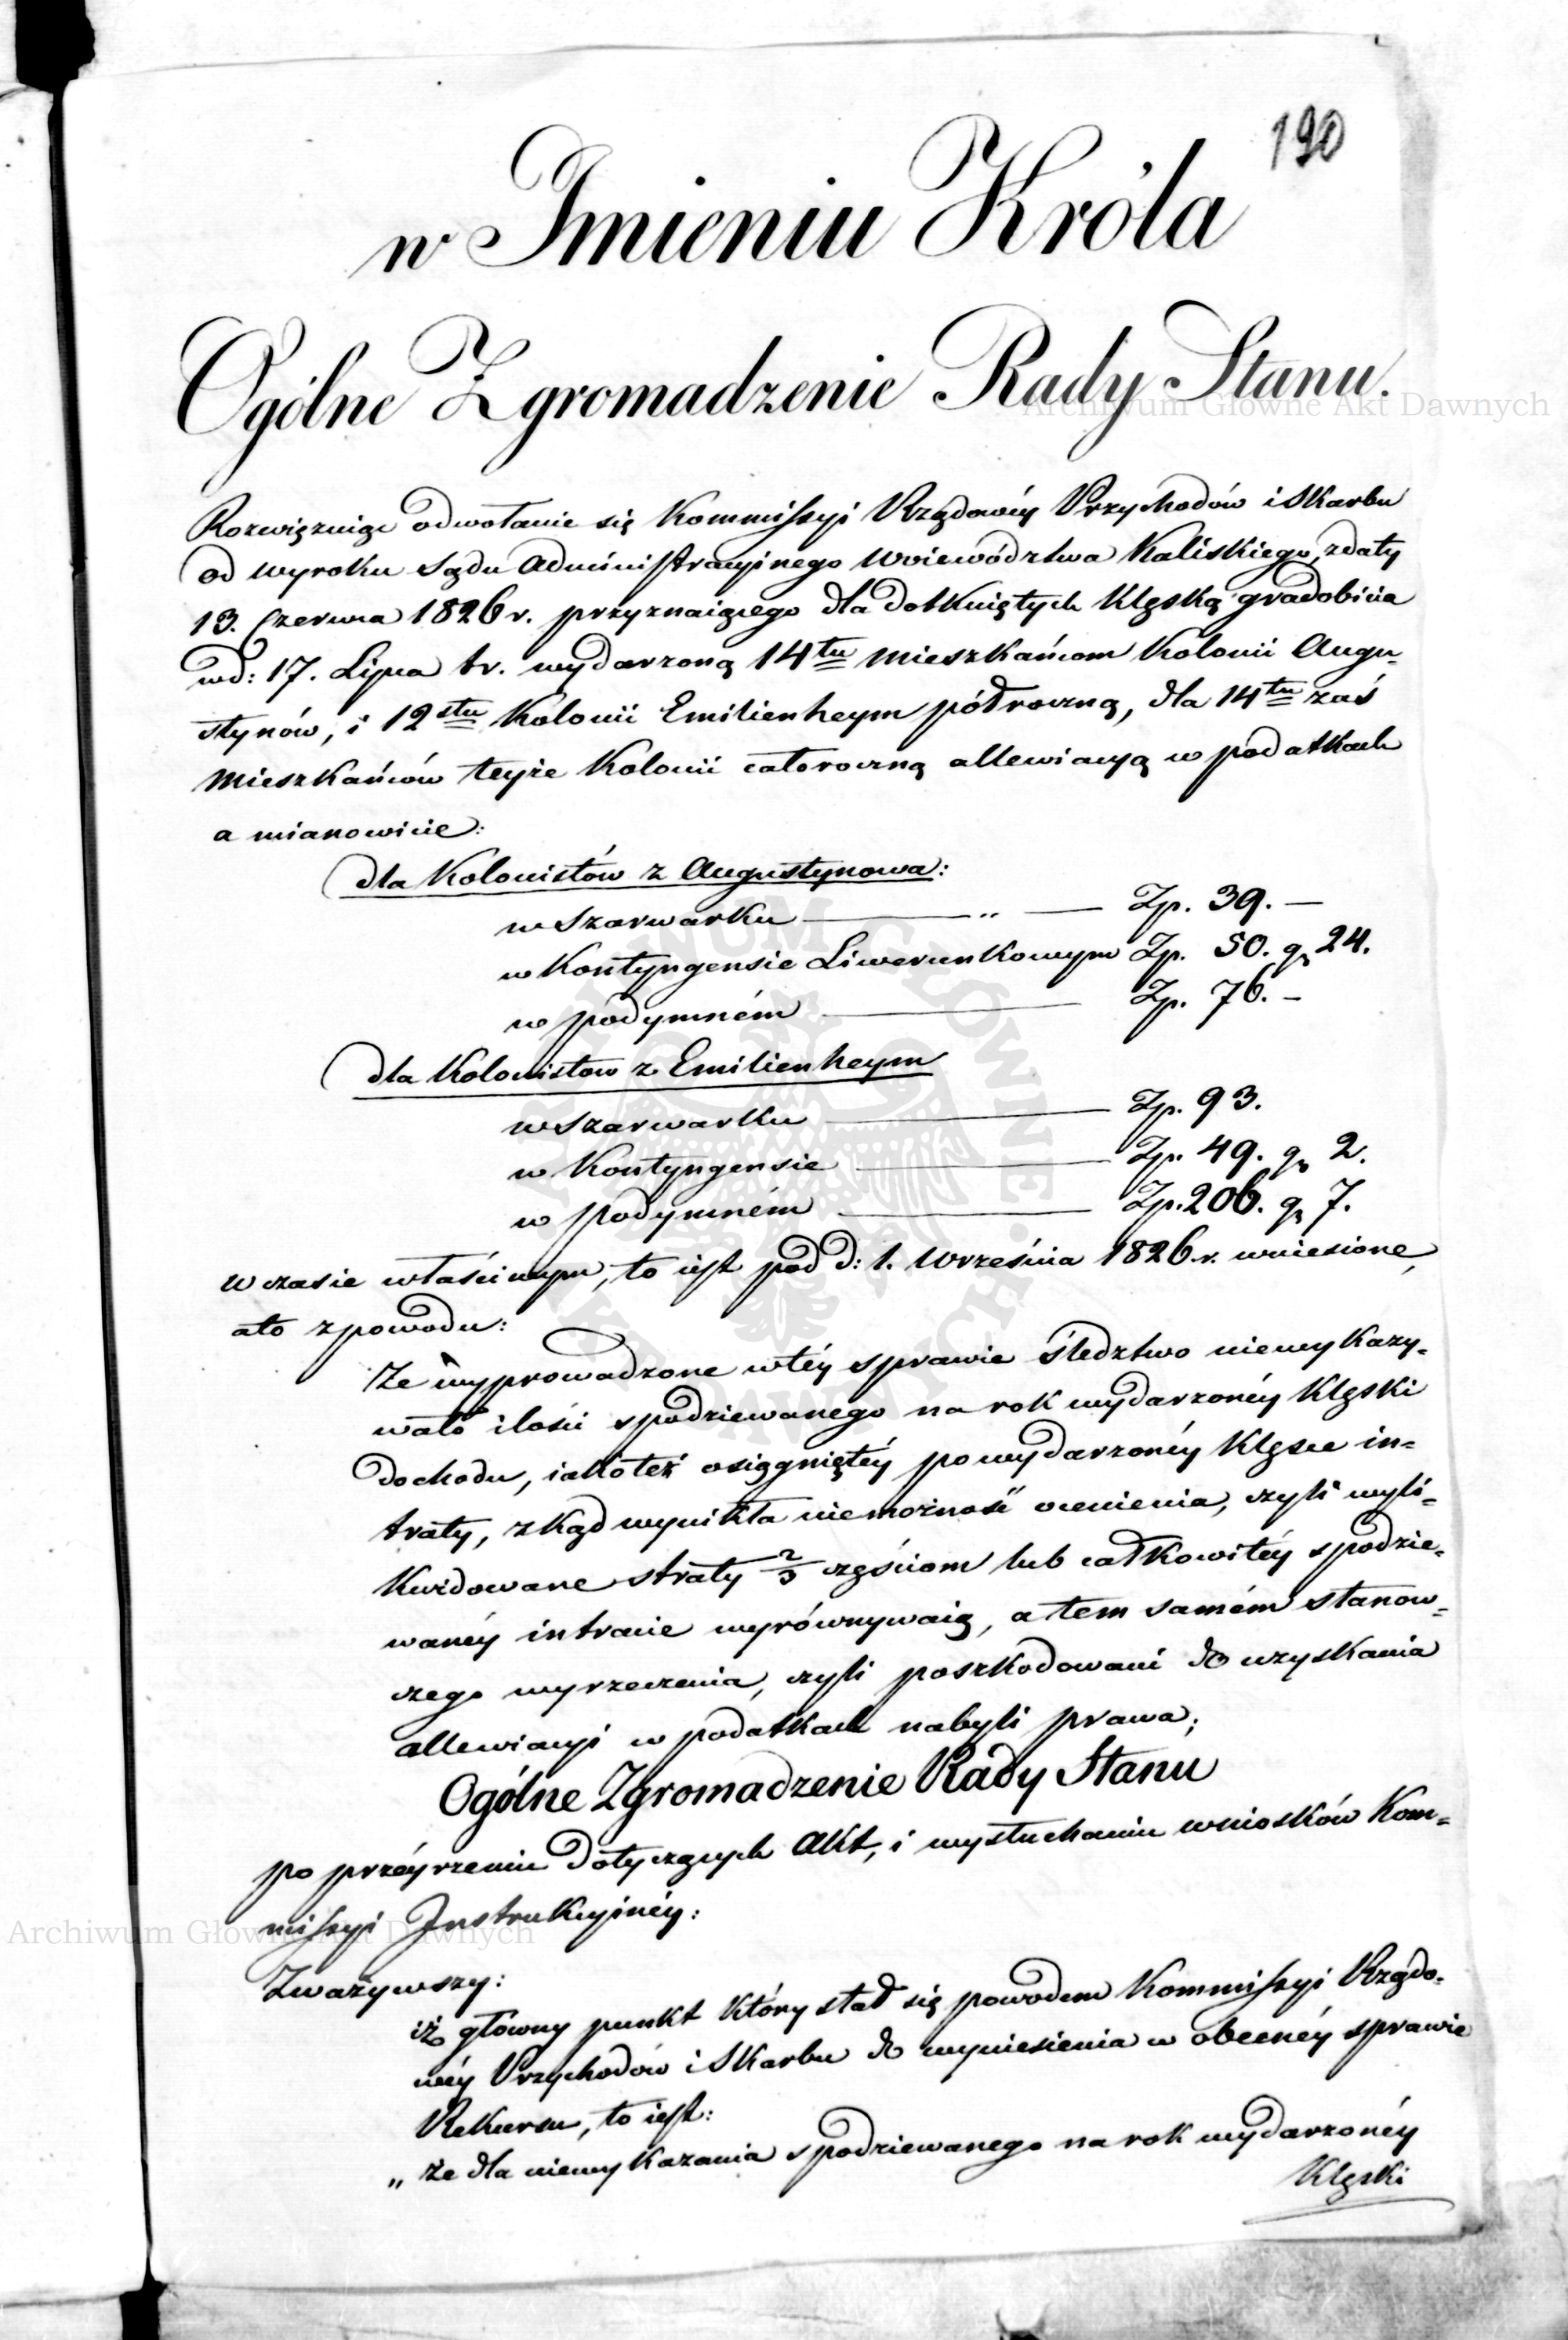 190
w Imieniu Króla
Ogólne Zgromadzenie Rady Stanu.
Archiwum Główne Akt Dawnych
Rozwiązuiąc odwołanie się Kommissyi Rządowéy Przychodów i Skarbu
od wyroku Sądu Administracyinego Woiewództwa Kaliskiego, z daty
13. Czerwca 1826 r. przyznaiącego dla dotkniętych klęską gradobicia
w d: 17. Lipca t.r. wydarzoną 14tu Mieszkańcom Kolonii Augu-
stynów, i 12stu Kolonii Emilienheym półroczną, dla 14tu zaś
Mieszkańców teyże Kolonii całoroczną allewiacyą w podatkach
a mianowicie:
dla Kolonistów z Augustynowa:
w Szarwarku — „ — Zp. 39. —
w Kontyngensie Liwerunkowym Zp. 50. gr 24.
w podymném — Zp. 76. —
dla Kolonistow z Emilienheym
w Szarwarku — Zp. 93.
w Kontyngensie — Zp. 49. gr 2.
w podymném — Zp. 206. gr 7.
w czasie właściwym, to iest pod d: 1. Września 1826. r. wniesione,
a to z powodu:
Że wyprowadzone w téy sprawie śledztwo niewykazy-
wało ilości spodziewanego na rok wydarzonéy klęski
dochodu, iako też osiągniętéy po wydarzonéy klęsce in-
traty, zkąd wynikła niemożność ocenienia, czyli wyli-
kwidowane straty 2/3 częściom lub całkowitéy spodzie-
wanéy intracie wyrównywaią, a tem samém stanow-
czego wyrzeczenia, czyli poszkodowani do uzyskania
allewiacyi w podatkach nabyli prawa;
Ogólne Zgromadzenie Rady Stanu
po przéyrzeniu dotyczących Akt, i wysłuchaniu wniosków Kom-
missyi Instrukcyinéy:
Archiwum Główne Akt Dawnych
Zważywszy:
iż główny punkt który stał się powodem Kommissyi Rządo-
wéy Przychodów i Skarbu do wyniesienia w obecnéy sprawie
Rekursu, to iest:
„ że dla niewykazania spodziewanego na rok wydarzonéy
Klęski